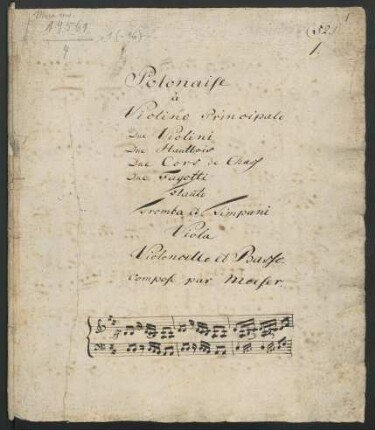 Mus. ms.
19561
9
(1-16)
(52)
1.
Polonaise
à
Violino Principale
Due Violini
Due Hautbois
Due Cors de Chass
Due Fagotti
Flauto
Tromba et Timpani
Viola
Violoncelle et Basso.
Composé par Moeser.